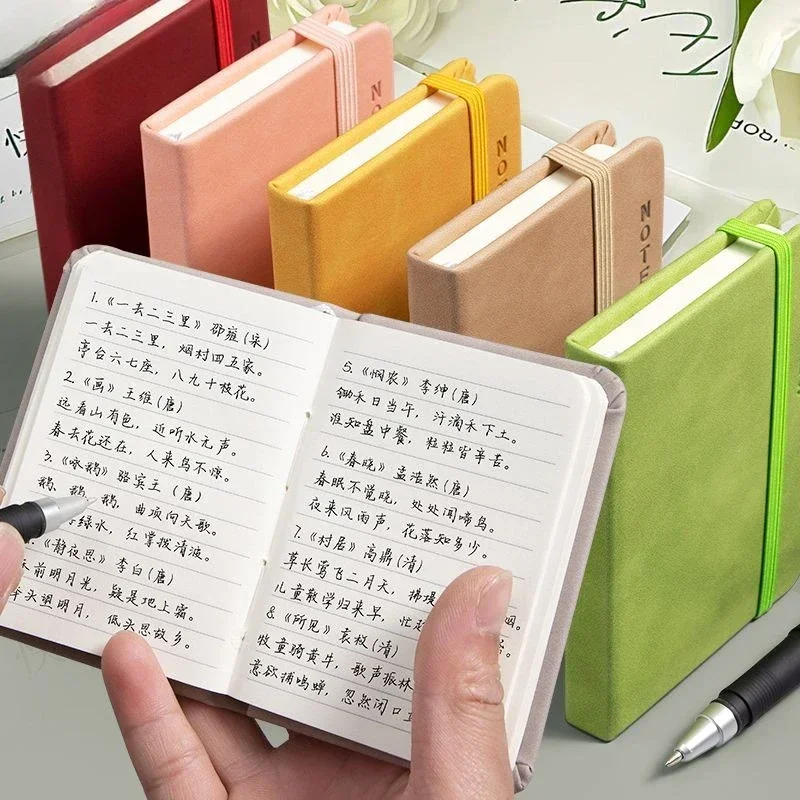 1.《一去二三里》邵雍(宋)
一去二三里，烟村四五家。
亭台六七座，八九十枝花。
2.《画》王维(唐)
远看山有色，近听水无声。
春去花还在，人来鸟不惊。
3.《咏鹅》骆宾王 (唐)
鹅、鹅、鹅，曲项向天歌。
绿水，红掌拨清波。
《静夜思》李白(唐)
前明月光，疑是地上霜。
头望明月，低头思故乡。
5.《悯农》李绅(唐)
锄禾日当午，汗滴禾下土。
谁知盘中餐，粒粒皆辛苦。
6.《春晓》孟浩然(唐)
春眠不觉晓，处处闻啼鸟。
夜来风雨声，花落知多少。
7.《村居》高鼎(清)
草长莺飞二月天，拂堤 烟。
儿童散学归来早，忙
8.《所见》袁枚(清)
牧童骑黄牛，歌声振林
意欲捕鸣蝉，忽然闭口
NO
NOTE